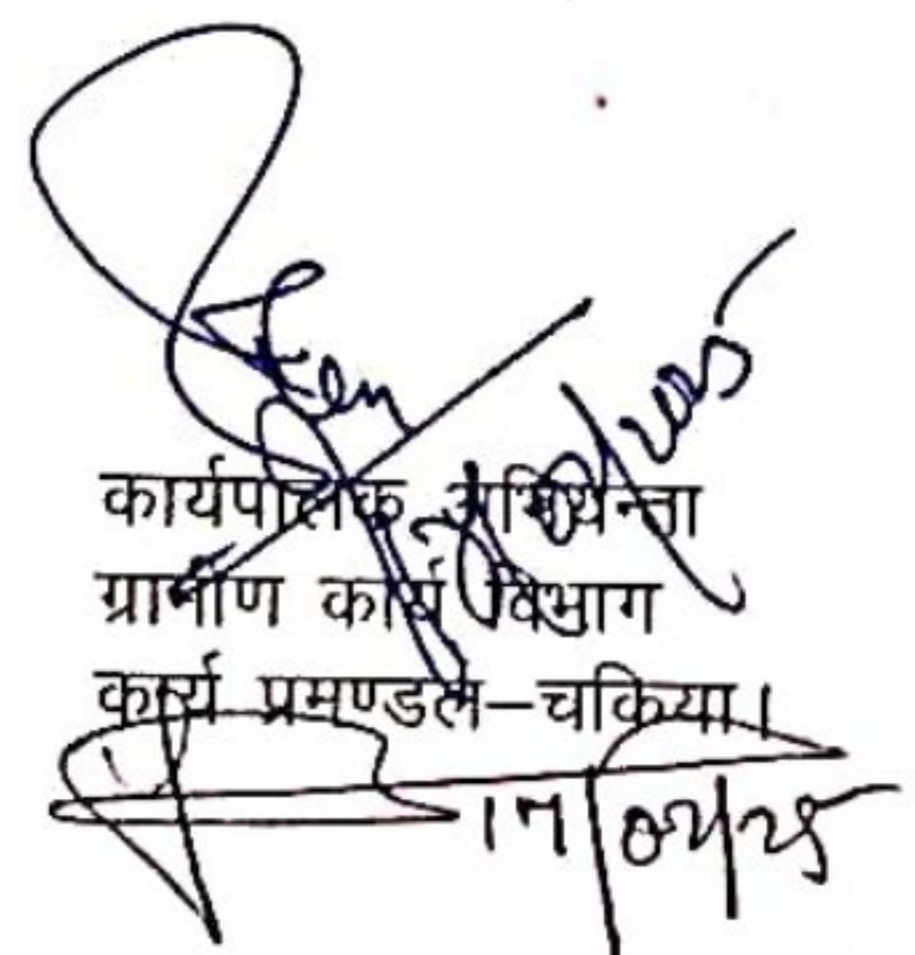 कार्यपालक अभियन्ता
ग्रामीण कार्य विभाग
कार्य प्रमण्डल–चकिया।
17/02/25